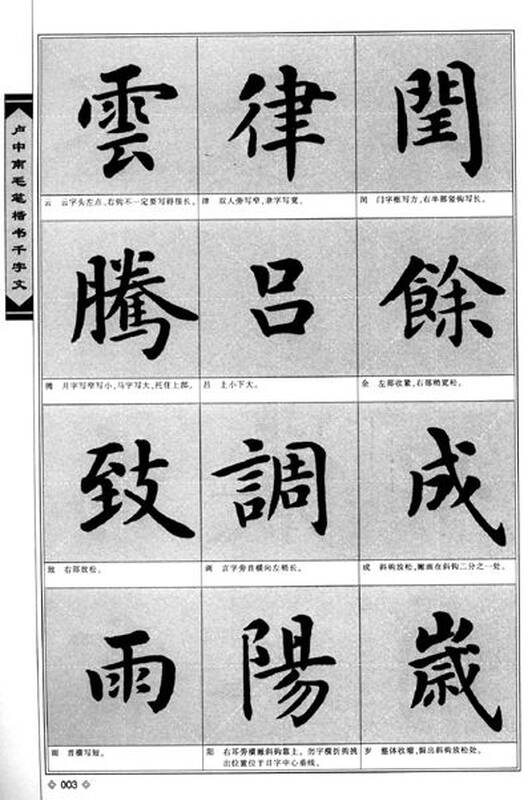 卢中南毛笔楷书千字文
閏
闰 门字框写方，右半部竖钩写长。
餘
余 左部收紧，右部稍宽松。
成
成 斜钩放松，撇画在斜钩二分之一处。
歲
岁 整体收缩，出斜钩放松处。
律
律 双人旁写窄，聿字写宽。
呂
吕 上小下大。
調
调 言字旁首横向左稍长。
陽
阳 右耳旁横撇斜钩靠上。勿字横折钩挑
出位置位于日字中心垂线。
雲
云 云字头左点、右钩不一定要写得很长。
騰
腾 月字写窄写小，马字写大，托住上部。
致
致 右部放松。
雨
雨 首横写短。
003